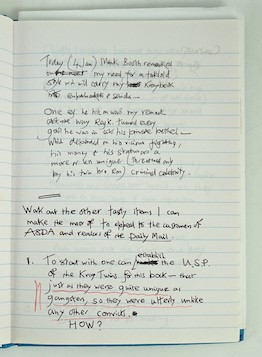 Today (4 Jan) Mark Booth remarked
my need for a tabloid
style wh will carry my Kraybook
One of he hit on was my remark
abt how Reg K. turned every
gaol he was in into his private brothel
While detained on his
his money & his
more or less unique (
by his twin bro Ron) criminal celebrity.
Work out the other tasty items I can
make the most of to appeal to the customers of
ASDA and readers of the Daily Mail.
1. To start with one can establish the U.S.P.
of the Kray Twins for this book - that
just as they were quite unique as
gangsters, so they were utterly unlike
any other convicts.
HOW?